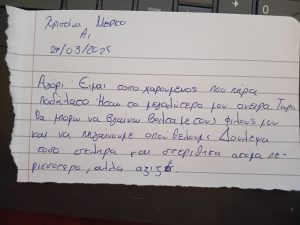 Χριστίνα Μάρκο
Α1
27/03/2025
Αγορι: Ειμαι τοσο χαρουμενος που πηρα
ποδηλατο. Ηταν το μεγαλύτερο μου ονειρο. Τωρα
θα μπορω να βγαινω βολτα με τους φιλους μου
και να πηγαινουμε οπου θελουμε. Δουλεψα
τοσο σκληρα και στερηθηκα ακομα πε-
ρισσοτερο, αλλα αξιζε